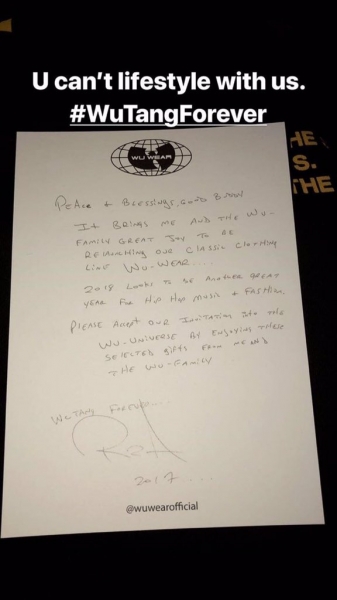 U can't lifestyle with us.
#WuTangForever
HE
S.
THE
WU WEAR
Peace + Blessings, Good Buddy
It Brings me and the Wu-
Family Great Joy to be
Relaunching our Classic Clothing
Line Wu-Wear....
2018 Looks to be Another Great
year for Hip Hop music + Fashion
Please Accept our Invitation into the
Wu-Universe By Enjoying these
selected gifts from me and
the Wu-Family
Wu Tang Forever...
RZA
2017...
@wuwearofficial